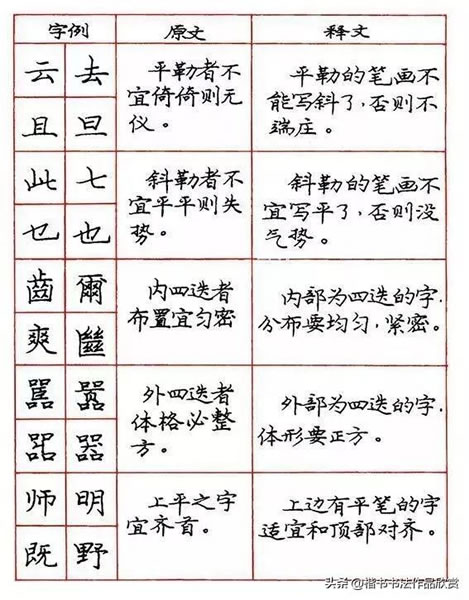 字例 原文 释文
云 去
且 旦
平勒者不
宜倚倚则无
仪。
平勒的笔画不
能写斜了,否则不
端庄。
此 七
乜 也
斜勒者不
宜平平则失
势。
斜勒的笔画不
宜写平了,否则没
气势。
齒 爾
爽
内四迭者
布置宜匀密
内部为四迭的字,
分布要均匀,紧密。
嚚 嚣
器
外四迭者
体格必整
方。
外部为四迭的字,
体形要正方。
师 明
既 野
上平之字
宜齐首。
上边有平笔的字
适宜和顶部对齐。
头条 @楷书书法作品欣赏